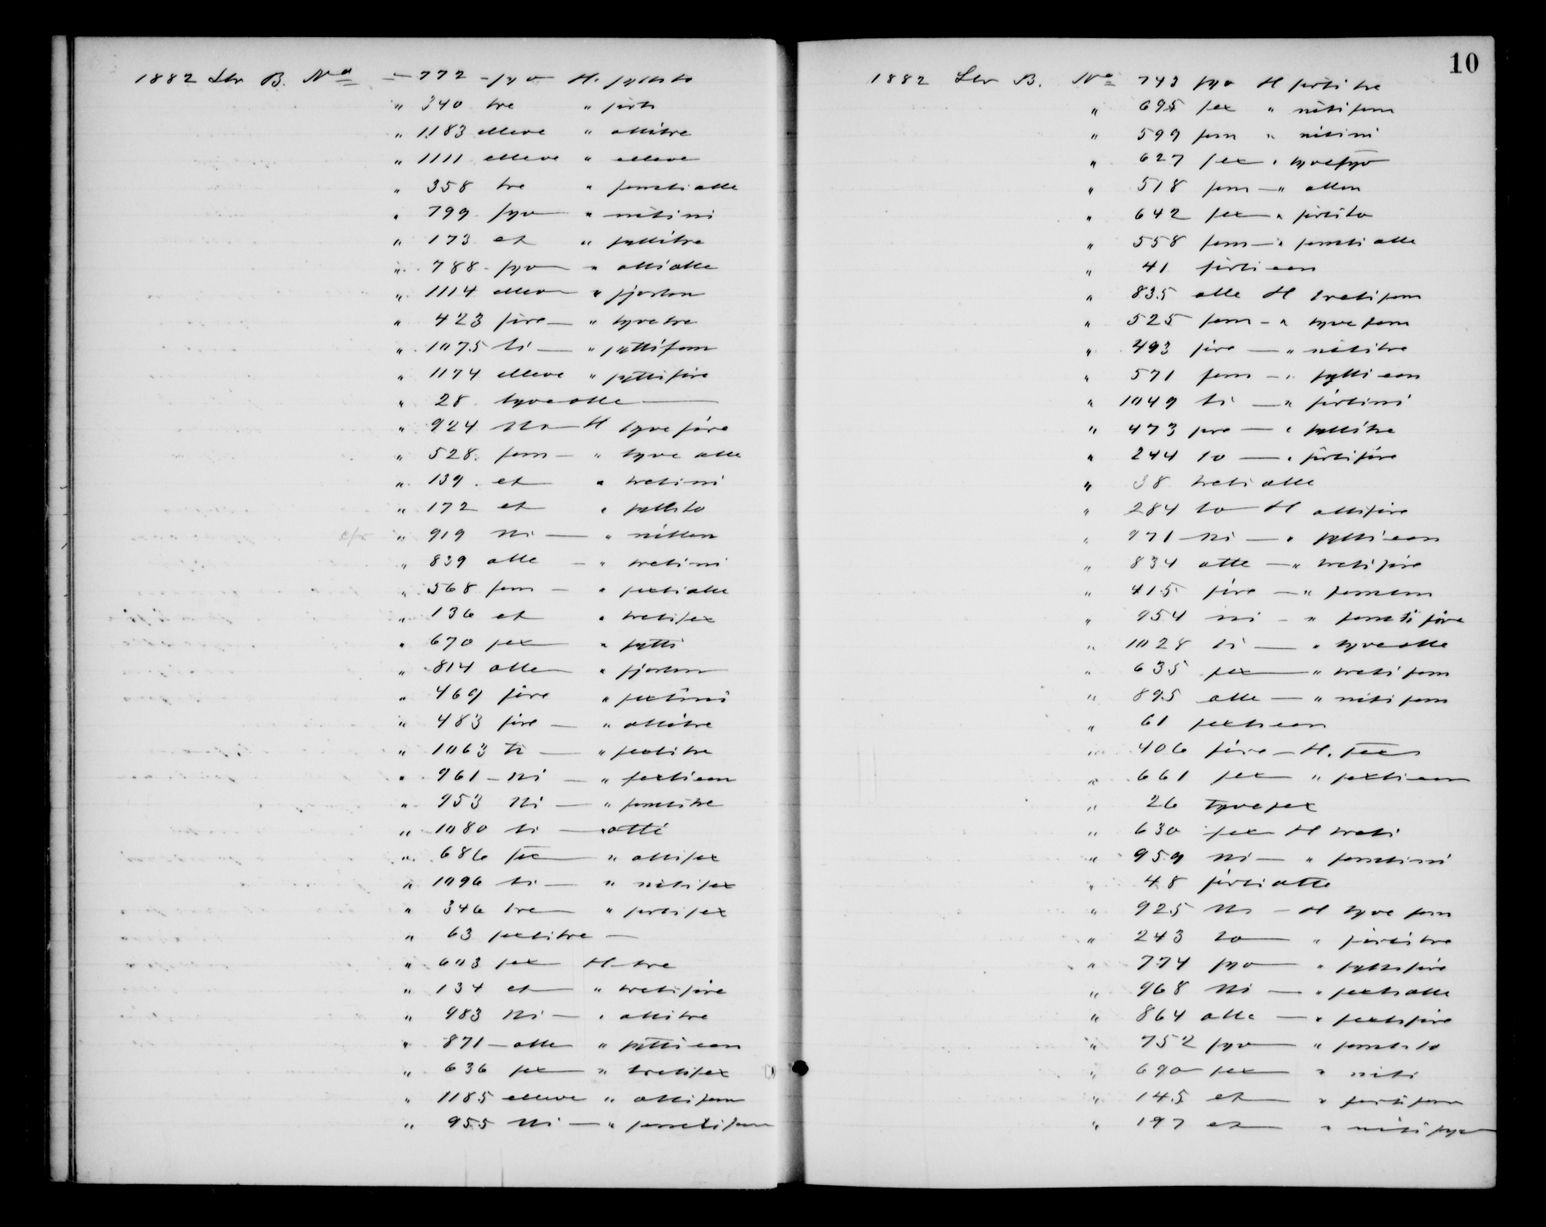 1882 Ltr B. No — 772 — syv H. syttito
" 340 tre " førti
" 1183 elleve " ottitre
" 1111 elleve " elleve
" 358 tre " femtiotte
" 799 syv " nitini
" 173 et " syttitre
" 788 syv " ottiotte
" 1114 elleve " fjorten
" 423 fire — " tyvetre
" 1075 ti — " syttifem
" 1174 elleve " syttifire
" 28 tyveotte —
" 924 Ni — H tyvefire
" 528 fem — " tyveotte
" 139 et " tretini
" 172 et " syttito
" 919 Ni — " nitten
" 839 otte — " tretini
" 568 fem — " sextiotte
" 136 et " tretisex
" 670 sex " sytti
" 814 otte " fjorten
" 469 fire " sextini
" 483 fire — " ottitre
" 1063 ti — " sextitre
" 961 — Ni — " sextieen
" 953 Ni — " femtitre
" 1080 ti — " otti
" 686 sex " ottisex
" 1096 ti — " nitisex
" 346 tre " førtisex
" 63 sextitre —
" 603 sex H tre
" 134 et " tretifire
" 983 Ni — " ottitre
" 871 — otte " syttieen
" 636 sex " tretisex
" 1185 elleve " ottifem
" 955 Ni — " femtifem
10
1882 Ltr B. No 743 syv H førtitre
" 695 sex " nitifem
" 599 fem " nitini
" 627 sex " tyvesyv
" 518 fem — " atten
" 642 sex — " førtito
" 558 fem — " femtiotte
" 41 førtieen
" 835 otte H tretifem
" 525 fem — " tyvefem
" 493 fire — " nititre
" 571 fem — " syttieen
" 1049 ti — " førtini
" 473 fire — " syttitre
" 244 to — " førtifire
" 38 tretiotte
" 284 to H ottifire
" 971 — ni — " syttieen
" 834 otte — " tretifire
" 415 fire — " femten
" 954 ni — " femtifire
" 1028 ti — " tyveotte
" 635 sex — " tretifem
" 895 otte — " nitifem
" 61 sextieen
" 406 fire — H. sex
" 661 sex " sextieen
" 26 tyvesex
" 630 sex H treti
" 959 Ni — " femtini
" 48 førtiotte
" 925 Ni — H tyvefem
" 243 to " førtitre
" 774 syv " syttifire
" 968 Ni — " sextiotte
" 864 otte — " sextifire
" 752 syv " femtito
" 690 sex " niti
" 145 et " førtifem
" 197 et " nitisyv